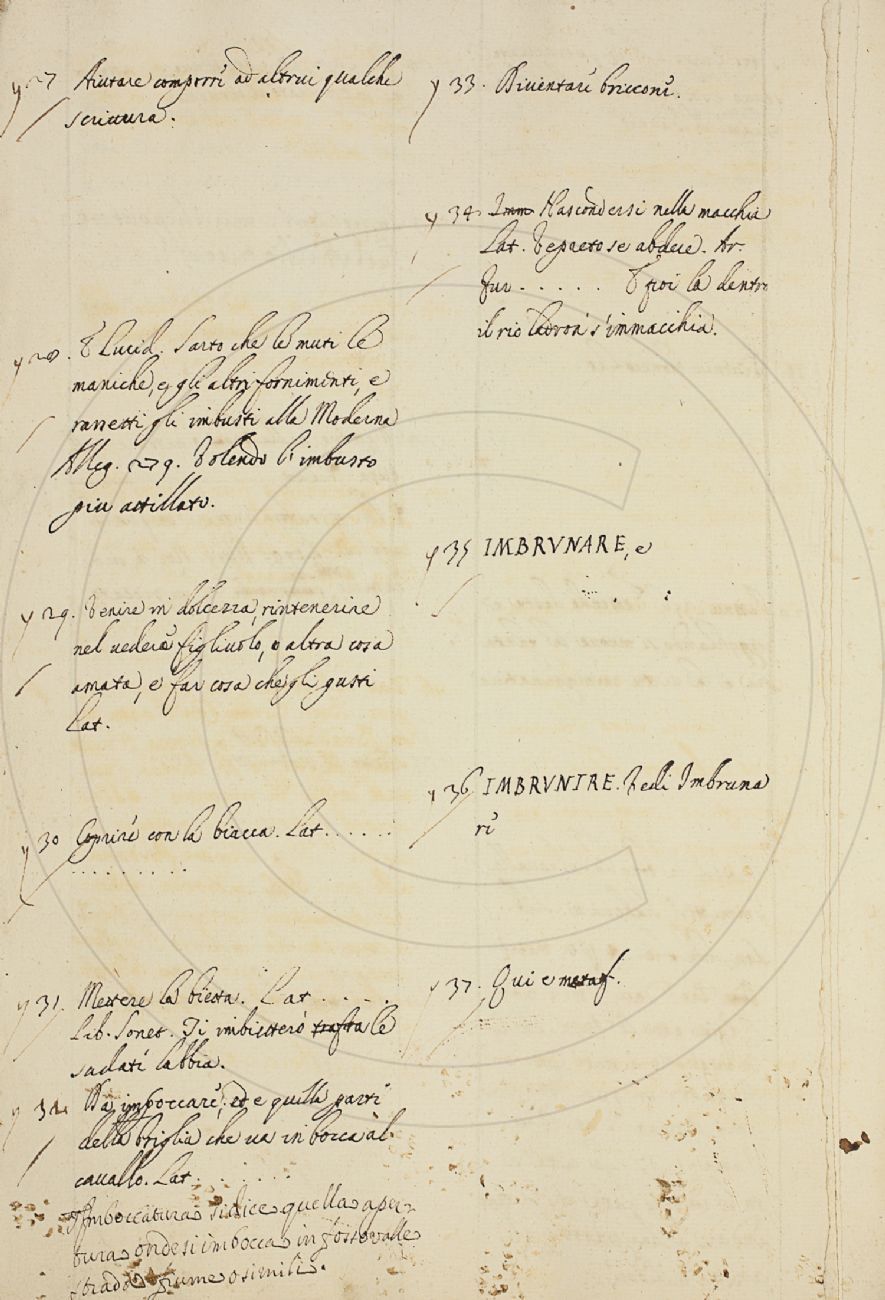 27 Aiutare comporre ad altrui qualche
scrittura.
28. V. Lucid. Sarto che le muti le
maniche, e gli altri fornimenti, e
rassetti gli imbusti alla Moderna
Alleg. 279. Volendo l'imbusto
piu attillato.
29. Venire in dolcezza, rintenerire
nel vedere figliuolo, o altra cosa
amata, e far cosa che gli gusti
Lat.
30 Coprire con la biacca. Lat. . . . . .
. . . . . . . . .
31. Mettere la bietta. Lat. . . . .
Lib. Sonet. Ti imbietterò le
sudate labbia.
32. Da imboccare, ed e quella parte
della briglia che va in bocca al
cavallo. Lat. . . . . .
Imboccatura si dice quella aper-
tura onde si imbocca in fosso valle
strada fiume o simili.
33. Diventare briccone.
34. Imm Nascondersi nella macchia
Lat. Vepreto se abdere. Ar.
fur . . . . . E poi la dentro
il rio ladron s'immacchia.
35 IMBRVNARE, e
36 IMBRVNIRE. Vedi Imbruna
re
37. Qui e metaf.